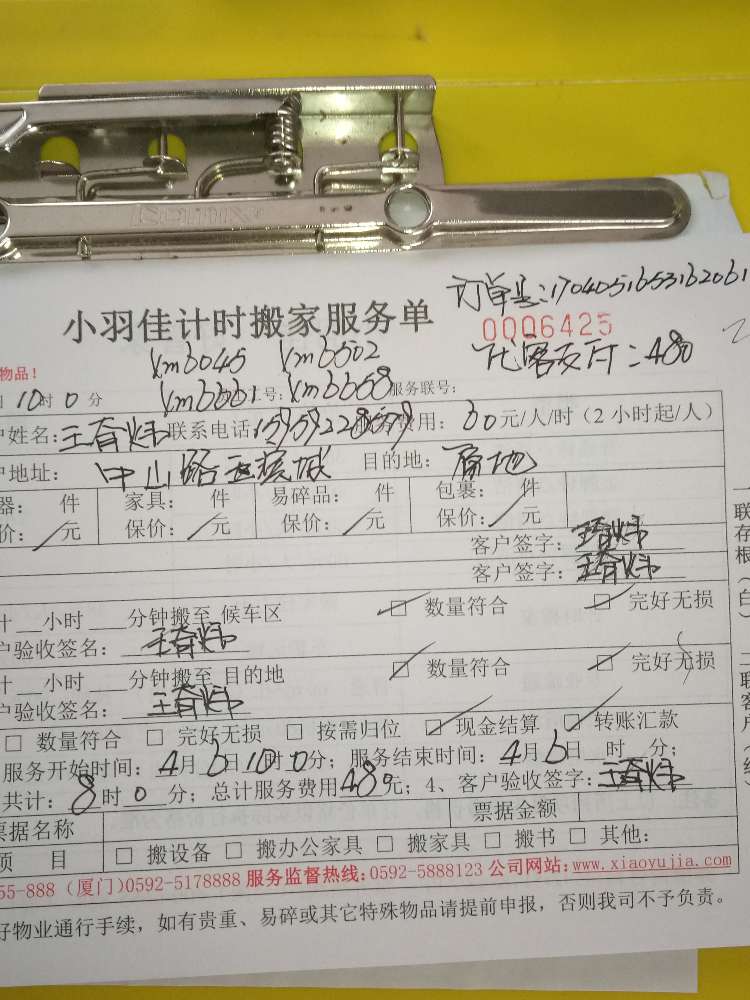 订单号:1704051653162061
小羽佳计时搬家服务单
0006425
代客支付:480
物品！
xm6045 xm6502
xm6661 xm6668
10时0分 工号: 服务联号:
户姓名:王育炜 联系电话 服务费用: 60元/人/时（2小时起/人）
户地址: 中山路 目的地: 原地
器: 件 家具: 件 易碎品: 件 包裹: 件
价: 元 保价: 元 保价: 元 保价: 元
客户签字: 王育炜
客户签字: 王育炜
计__小时___分钟搬至 候车区 □ 数量符合 □ 完好无损
户验收签名: 王育炜
计__小时___分钟搬至 目的地 □ 数量符合 □ 完好无损
户验收签名: 王育炜
□ 数量符合 □ 完好无损 □ 按需归位 □ 现金结算 □ 转账汇款
服务开始时间: 4月6日10时0分; 服务结束时间: 4月6日__时__分;
共计: 8时0分; 总计服务费用480元; 4、客户验收签字: 王育炜
票据名称 票据金额
项 目 □ 搬设备 □ 搬办公家具 □ 搬家具 □ 搬书 □ 其他:
55-888（厦门）0592-5178888 服务监督热线:0592-5888123 公司网站:www.xiaoyujia.com
好物业通行手续，如有贵重、易碎或其它特殊物品请提前申报，否则我司不予负责。
一联存根（白）
二联客户（红）